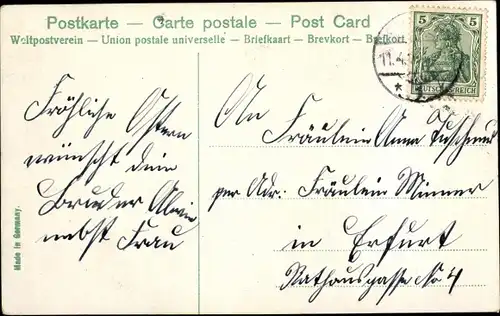 Postkarte — Carte postale — Post Card
Weltpostverein — Union postale universelle — Briefkaart — Brevkort —
5 5
DEUTSCHES REICH
11.4.
Fröhliche Ostern
wünscht dein
Bruder Alwin
nebst Frau
An
Fräulein Anna
per Adr: Fräulein Minner
in Erfurt
Rathausgasse No 4
Made in Germany.